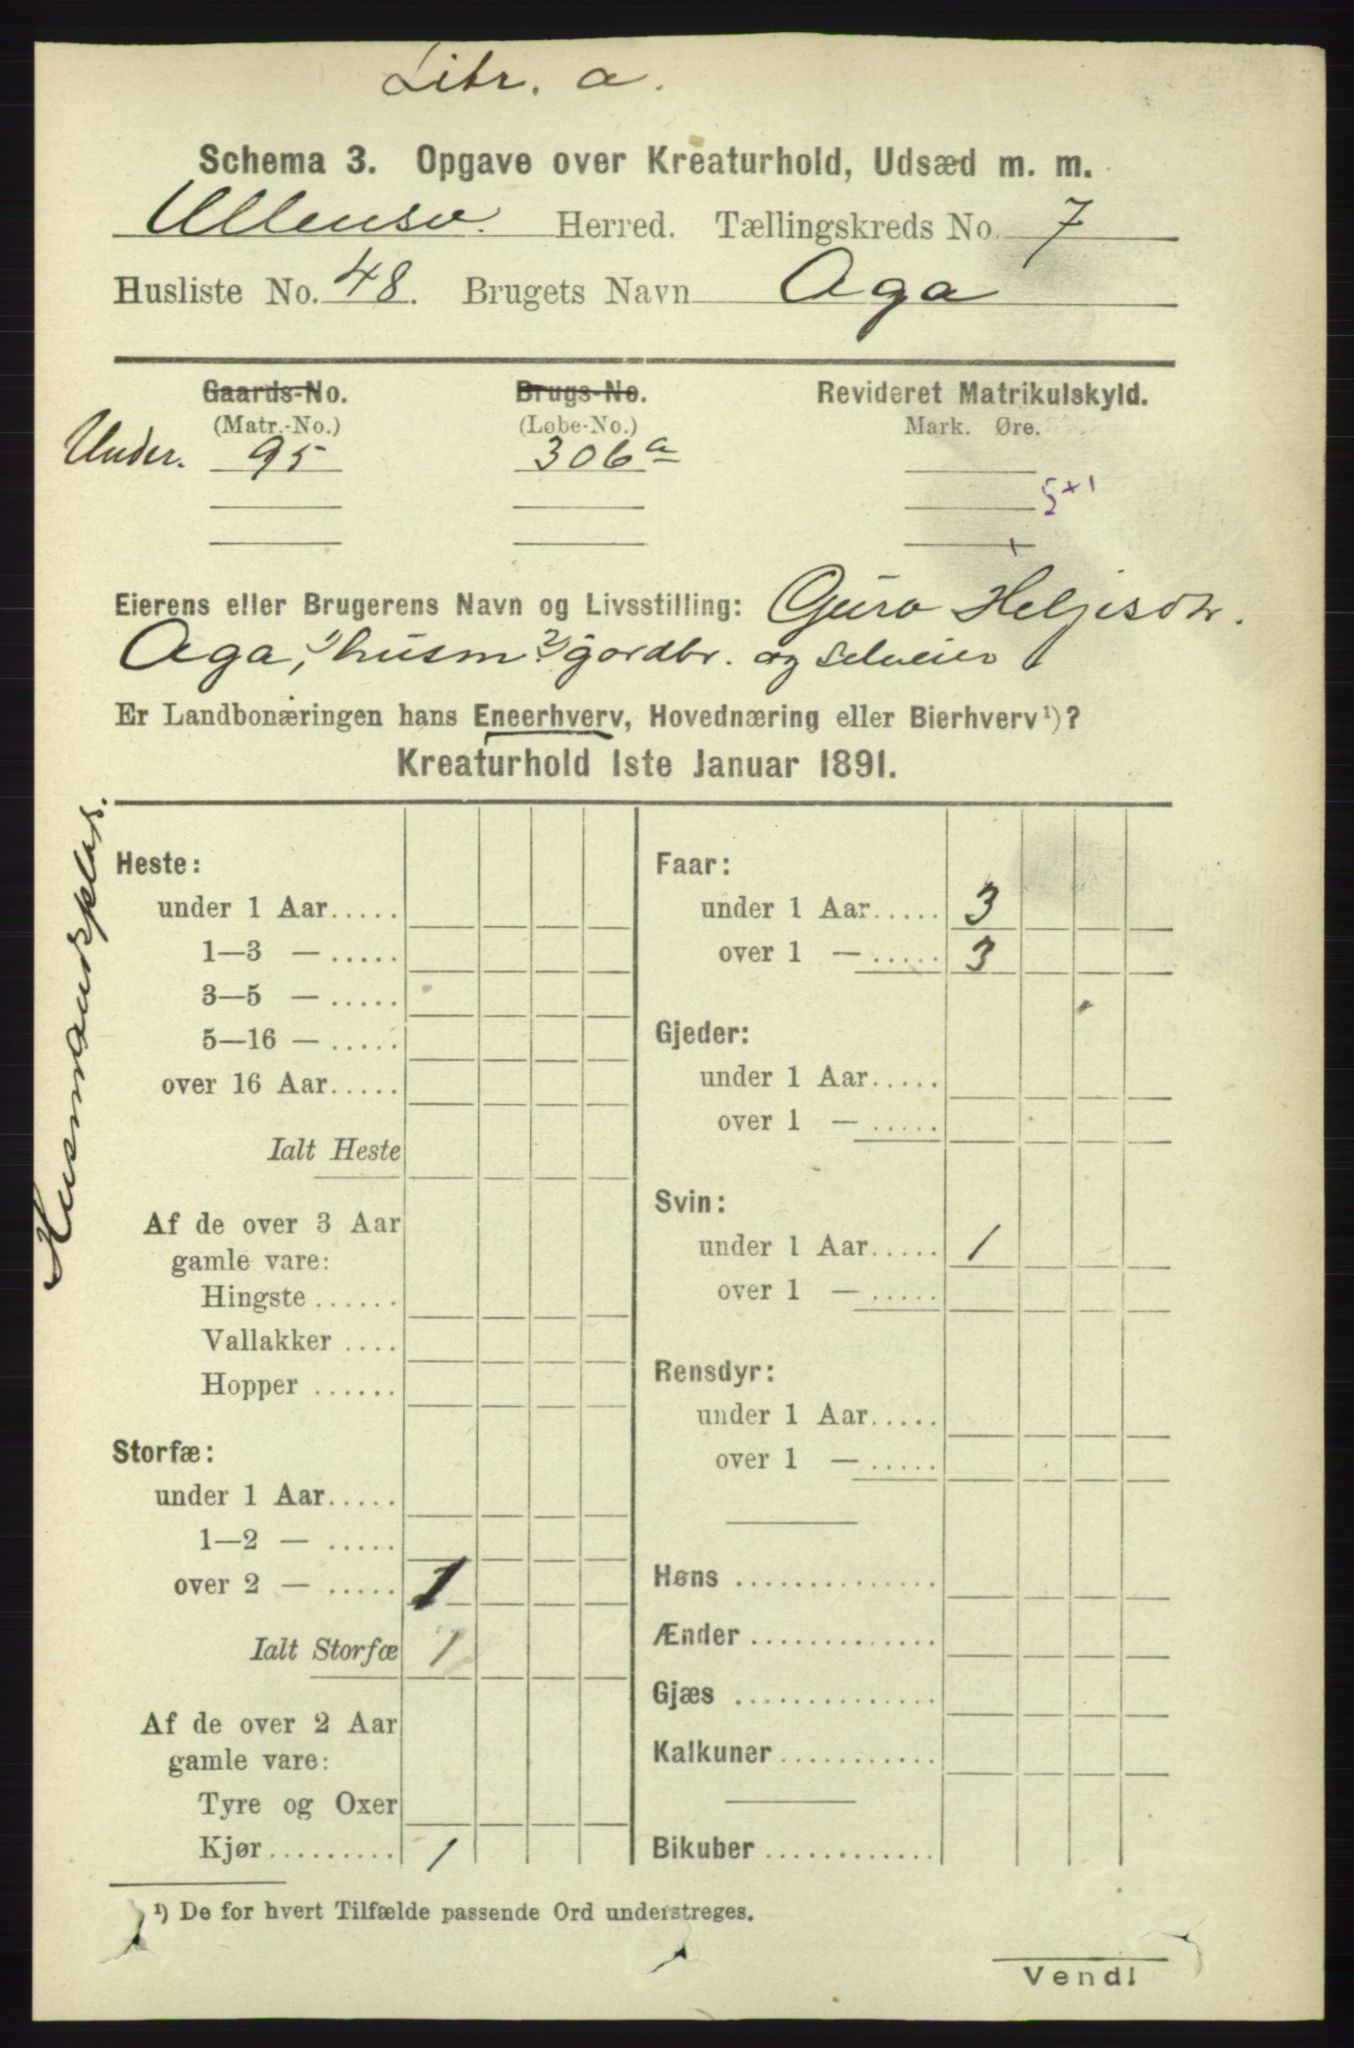 Litr. a.
Schema 3. Opgave over Kreaturhold, Udsæd m. m.
Ullensv. Herred. Tællingskreds No. 7
Husliste No. 48. Brugets Navn Aga
Gaards-No. Brugs-No. Revideret Matrikulskyld.
(Matr.-No.) (Løbe-No.) Mark. Øre.
Under. 95 306a
5+1
Eierens eller Brugerens Navn og Livsstilling: Guro Heljesdtr.
Aga, 1) husm 2) gordbr. og selveier
Er Landbonæringen hans Eneerhverv, Hovednæring eller Bierhverv¹)?
Kreaturhold 1ste Januar 1891.
Husmandsplds.
Heste:
under 1 Aar.....
1—3 — .....
3—5 — .....
5—16 — .....
over 16 Aar.....
Ialt Heste
Af de over 3 Aar
gamle vare:
Hingste ......
Vallakker ....
Hopper ......
Storfæ:
under 1 Aar.....
1—2 — .....
over 2 — ..... 1
Ialt Storfæ 1
Af de over 2 Aar
gamle vare:
Tyre og Oxer
Kjør......... 1
Faar:
under 1 Aar..... 3
over 1 — ..... 3
Gjeder:
under 1 Aar.....
over 1 — .....
Svin:
under 1 Aar..... 1
over 1 — .....
Rensdyr:
under 1 Aar.....
over 1 — .....
Høns ..............
Ænder .............
Gjæs ..............
Kalkuner ...........
Bikuber ............
¹) De for hvert Tilfælde passende Ord understreges.
Vend!